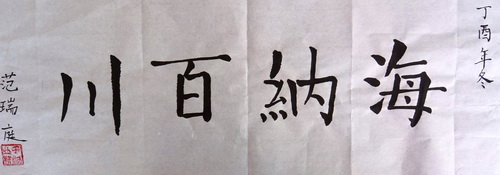 丁酉年冬
海納百川
范瑞庭